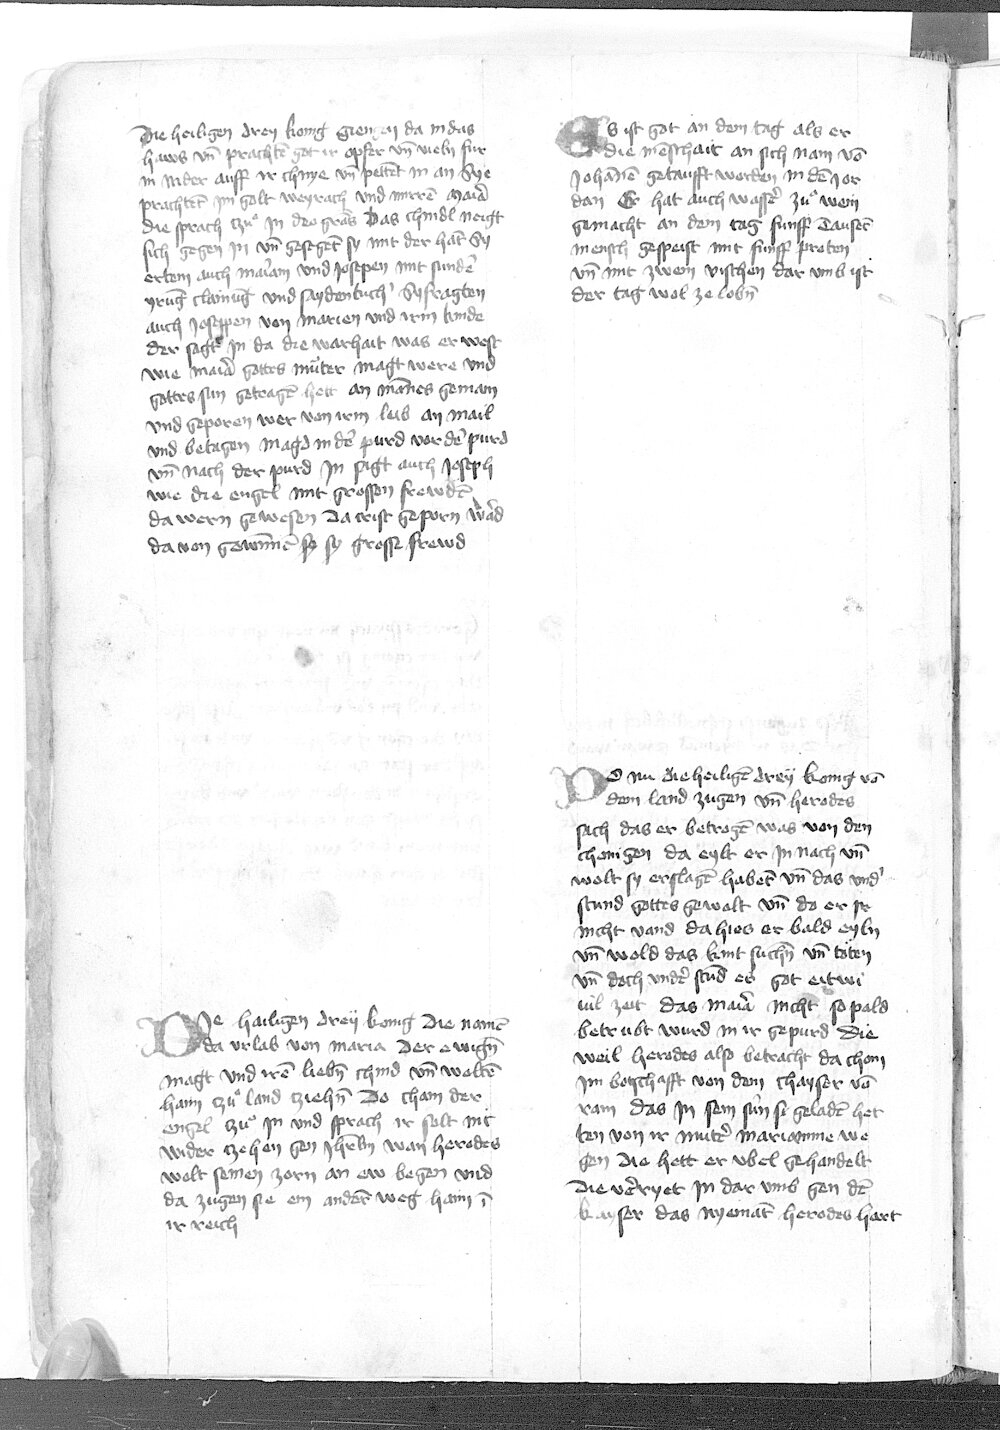 Die heiligen drey konig giengen da in das
haws vn̄ prachtē got ir opfer vn̄ vieln für
in nider auff ir chnye vn̄ pettēt in an Sye
prachtēt im golt weyrach vnd mirrē Maria
die sprach czu in deo gras Das chindl neigt
sich gegen in vn̄ gesegēt sy mit der hāt Sy
ertem auch mariam vnd Josepen mit sunder
yrūg clainūg vnd saydentuch Sy fragten
auch Joseppen von Marien vnd irm kinde
der sagt in da die warhait was er west
wie maria gottes muter magt were vnd
gottes sun getragē hett an mānes gemain
vnd geporen wer von irm leib an mail
vnd betagen magd in der purd vor der purd
vn̄ nach der purd In sagt auch Joseph
wie die engel mit grossen frewdē
da wern gewesen Da crist geporn ward
da von gewūnē sy grosse frewd
Die hailigen dreÿ konig Die namē
da vrlab von maria Der ewign̄
magt vnd irē liebn̄ chind vn̄ woltē
haim czu land cziehn̄ Do cham der
engel czu in vnd sprach ir solt nit
wider czehen gen Jhrlm wan herodes
wolt seinen zorn an ew began vnd
da zugen sie ein andern weg haim ī
ir reich
Es ist got an dem tag als er
die mēschait an sich nam vō
Johānē getaufft worden in dē Jor
dan Er hat auch wasser zu wein
gemacht an dem tag funff Tausēt
mensch gespeist mit funff proten
vn̄ mit zwein vischen dar vmb ist
der tag wol ze lobn̄
Do nu die heiligē dreÿ konig vō
dem land zugen vn̄ herodes
sach das er betrogē was von den
chonigen da eylt er in nach vn̄
wolt sy erslagē habēt vn̄ das vnd
stund gottes gewalt vn̄ do er sy
nicht vand da hies er bald eyln
vn̄ wold das kint suchn̄ vn̄ töten
vn̄ doch vnder stūd es got etwi
uil zeit das maria nicht so pald
betrubt wurd in ir gepurd Die
weil herodes also betracht da chom
im botschafft von dem chayser vō
rom das in sein sün si geladē het
ten von ir muter mariamme we
gen die hett er vbel gehandelt
Die verryet in dar vmb gen dē
kayser das nyemāt herodes hart